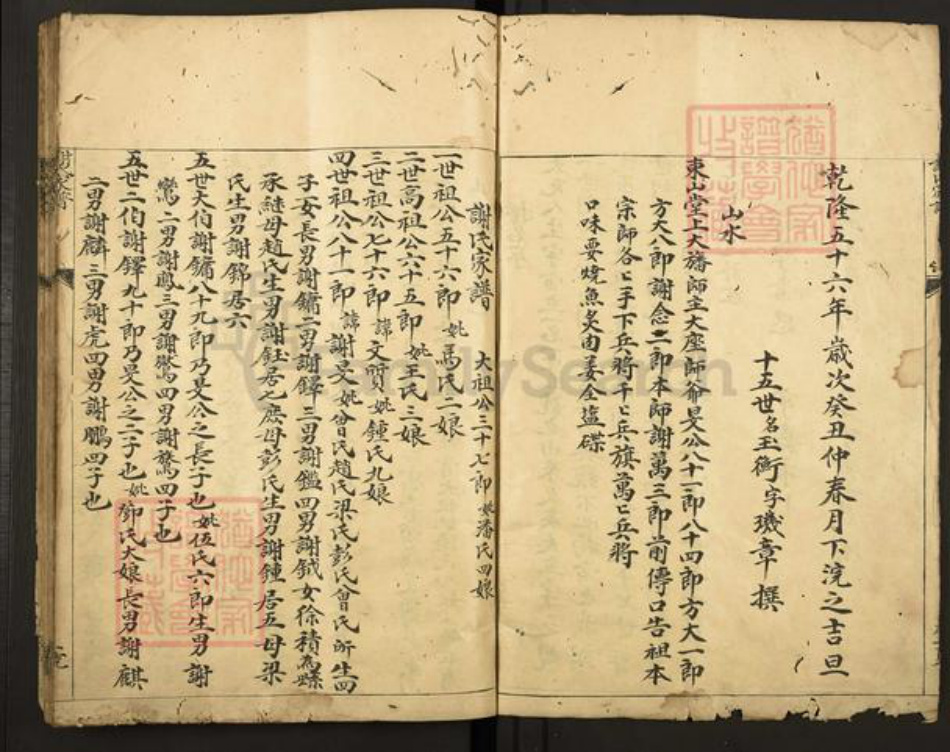 乾隆五十六年歲次癸丑仲春月下浣之吉旦
十五世名玉衡字璣章 撰
山水
東山堂上大旛師主大座師爺旻公八十一郎八十四郎方大一郎
方大八郎謝念三郎本師謝萬三郎前傳口告祖本
宗師各匕手下兵將千匕兵旗萬匕兵將
口味要燒魚炙肉姜仝塩碟
謝氏家譜 大祖公三十七郎 妣潘氏四娘
一世祖公五十六郎 妣馬氏二娘
二世高祖公六十五郎 妣王氏三娘
三世祖公七十六郎 諱文質 妣鍾氏九娘
四世祖公八十一郎 諱謝旻 妣曾氏趙氏梁氏彭氏曾氏所生四
子一女長男謝鏞二男謝鐸三男謝鑑四男謝鉞女徐積為
承継母趙氏生男謝鈺居七庶母彭氏生男謝鍾居五母梁
氏生男謝錦居六
五世大伯謝鏞八十九郎乃旻公之長子也 妣伍氏六郎生男謝
鸞二男謝鳳三男謝鶯四男謝鶩四子也
五世二伯謝鐸九十郎乃旻公之二子也 妣鄧氏大娘長男謝麒
二男謝麟三男謝虎四男謝鵬四子也
FamilySearch